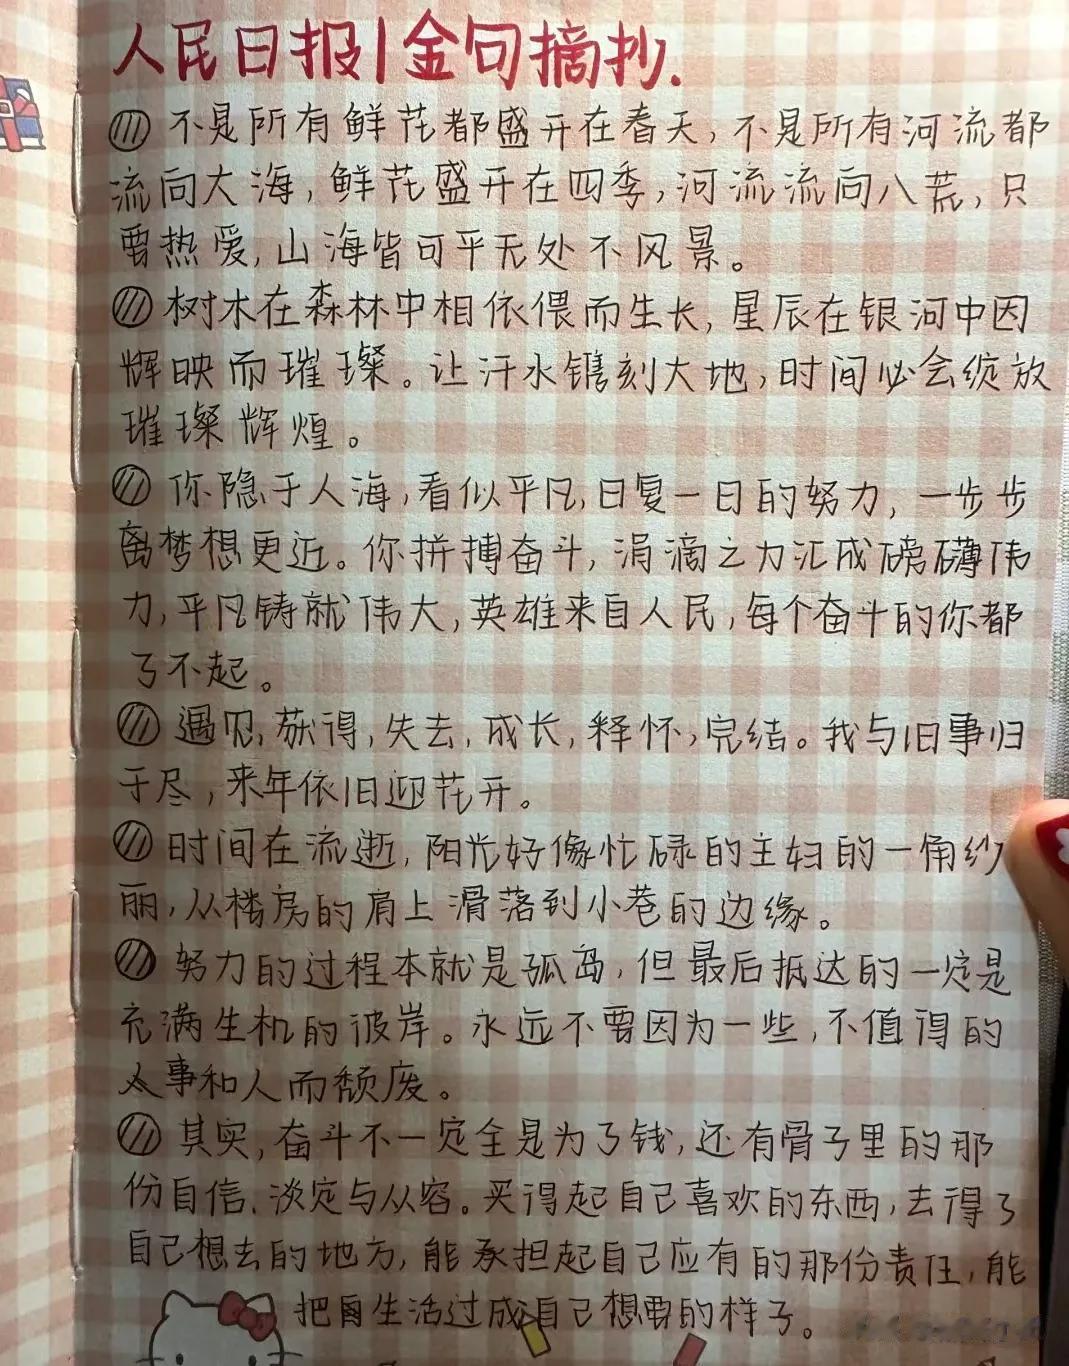 人民日报|金句摘抄.
不是所有鲜花都盛开在春天,不是所有河流都
流向大海,鲜花盛开在四季,河流流向八荒,只
要热爱,山海皆可平无处不风景。
树木在森林中相依偎而生长,星辰在银河中因
辉映而璀璨。让汗水镌刻大地,时间必会绽放
璀璨辉煌。
你隐于人海,看似平凡,日复一日的努力,一步步
离梦想更近。你拼搏奋斗,涓滴之力汇成磅礴伟
力,平凡铸就伟大,英雄来自人民,每个奋斗的你都
了不起。
遇见,获得,失去,成长,释怀,完结。我与旧事归
于尽,来年依旧迎花开。
时间在流逝,阳光好像忙碌的主妇的一角纱
丽,从楼房的肩上滑落到小巷的边缘。
努力的过程本就是孤岛,但最后抵达的一定是
充满生机的彼岸。永远不要因为一些,不值得的
事和人而颓废。
其实,奋斗不一定全是为了钱,还有骨子里的那
份自信、淡定与从容。买得起自己喜欢的东西,去得了
自己想去的地方,能承担起自己应有的那份责任,能
把自生活过成自己想要的样子。